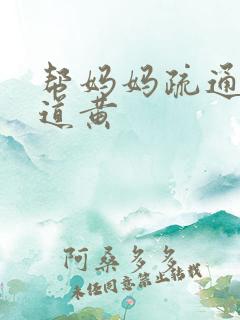 帮妈妈疏通
道黄
阿桑多多
未经同意禁止转载